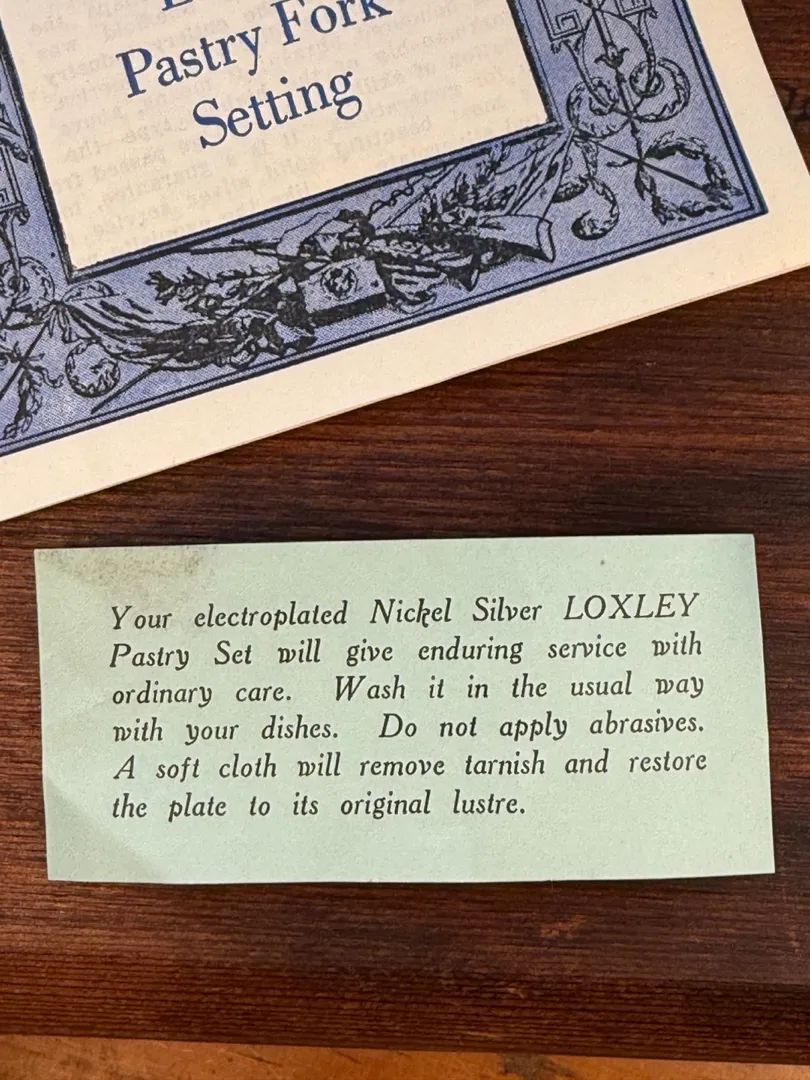 Pastry Fork
Setting
Your electroplated Nickel Silver LOXLEY
Pastry Set will give enduring service with
ordinary care. Wash it in the usual way
with your dishes. Do not apply abrasives.
A soft cloth will remove tarnish and restore
the plate to its original lustre.